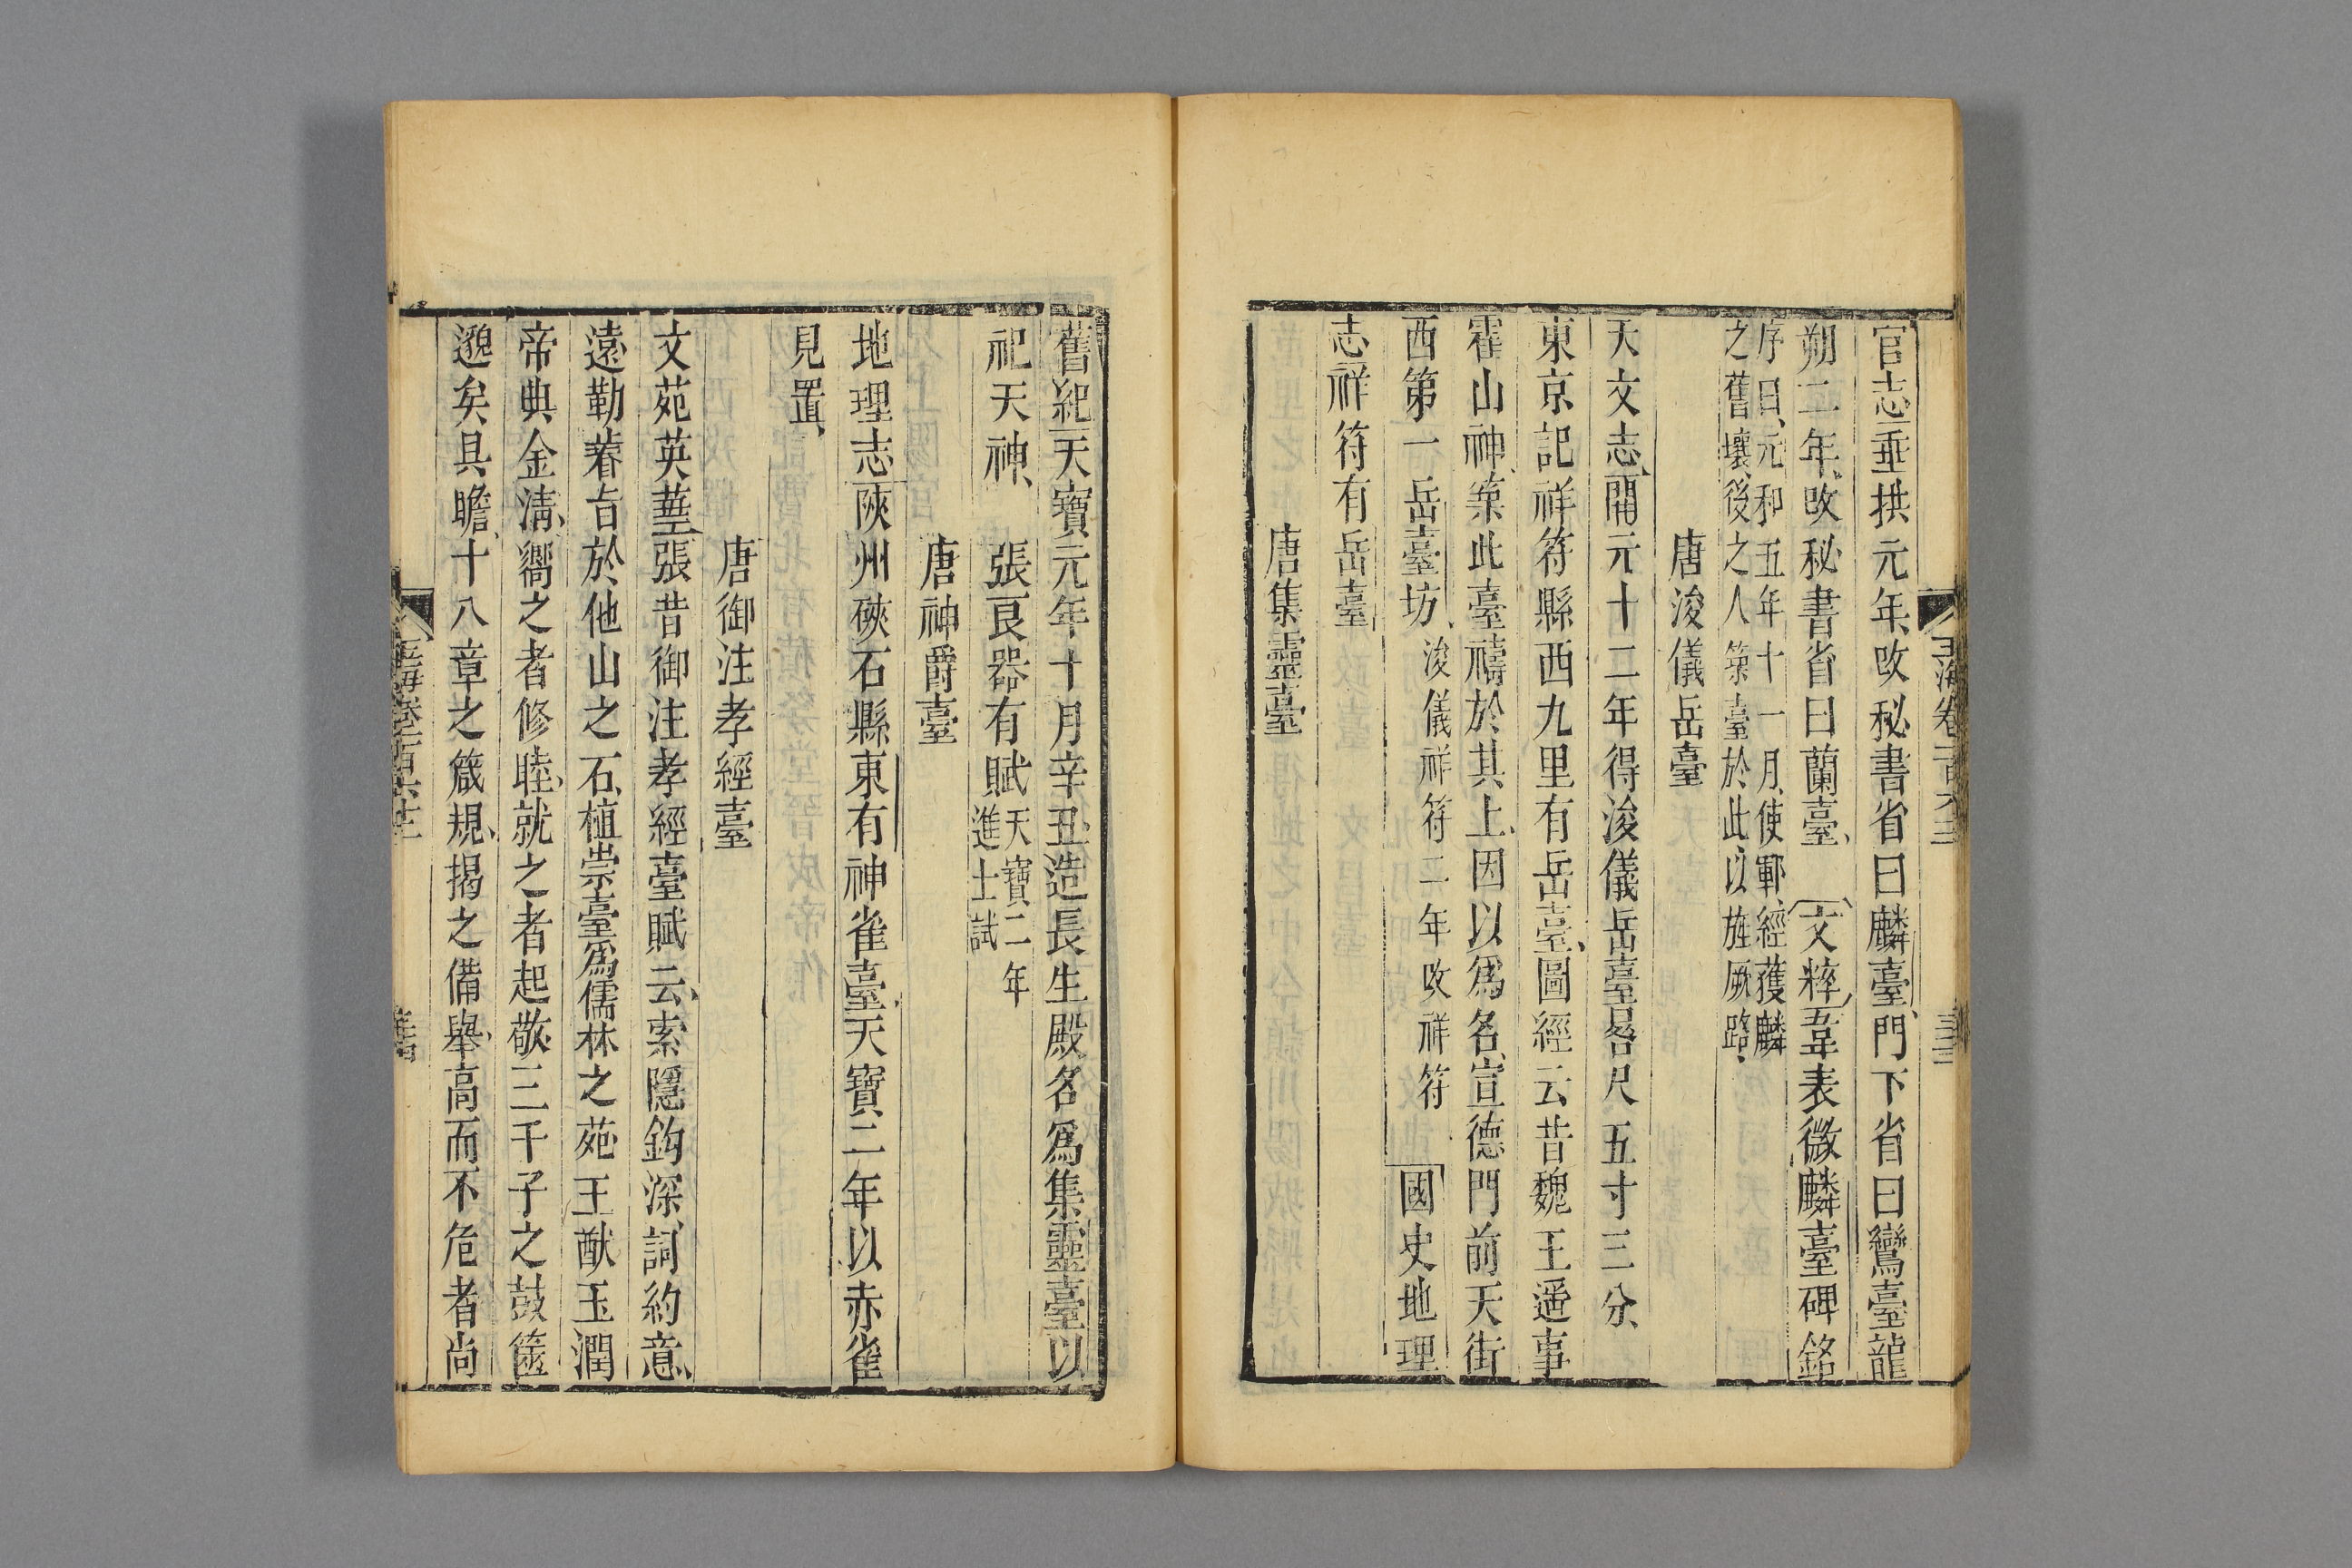 官志垂拱元年攺秘書省曰麟臺門下省曰鸞臺龍
朔二年攺秘書省曰蘭臺文粹韋表微麟臺碑銘
序曰元和五年十一月使鄆經獲麟
之舊壤後之人築臺於此以旌厥路
唐浚儀岳臺
天文志開元十二年得浚儀岳臺晷尺五寸三分
東京記祥符縣西九里有岳臺圖經云昔魏王遥事
霍山神築此臺禱於其上因以爲名宣德門前天街
西第一岳臺坊浚儀祥符二年攺祥符國史地理
志祥符有岳臺
唐集靈臺
舊紀天寶元年十月辛丑造長生殿名爲集靈臺以
祀天神張良器有賦天寶二年
進士試
唐神爵臺
地理志陝州硤石縣東有神雀臺天寶二年以赤雀
見置
唐御注孝經臺
文苑英華張昔御注孝經臺賦云索隱鈎深詞約意
遠勒睿旨於他山之石植崇臺爲儒林之苑王猷玉潤
帝典金淸嚮之者修睦就之者起敬三千子之鼓篋
邈矣具瞻十八章之箴規揭之備舉高而不危者尚